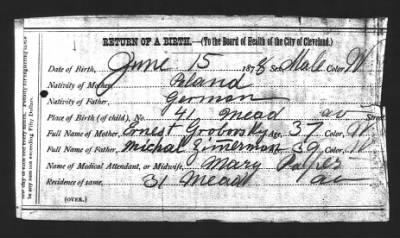 RETURN OF A BIRTH.—(To the Board of Health of the City of Cleveland.)
Date of Birth, June 15 1878 Sex Male Color, W
Nativity of Mother, Poland
Nativity of Father, German
Place of Birth (of child), No. 41 Mead av Street
Full Name of Mother, Ernest Grobovsky Age, 37 Color, W
Full Name of Father, Michal Zimerman 39 Color, W
Name of Medical Attendant, or Midwife, Mary
Residence of same, 31 Mead av
(OVER.)